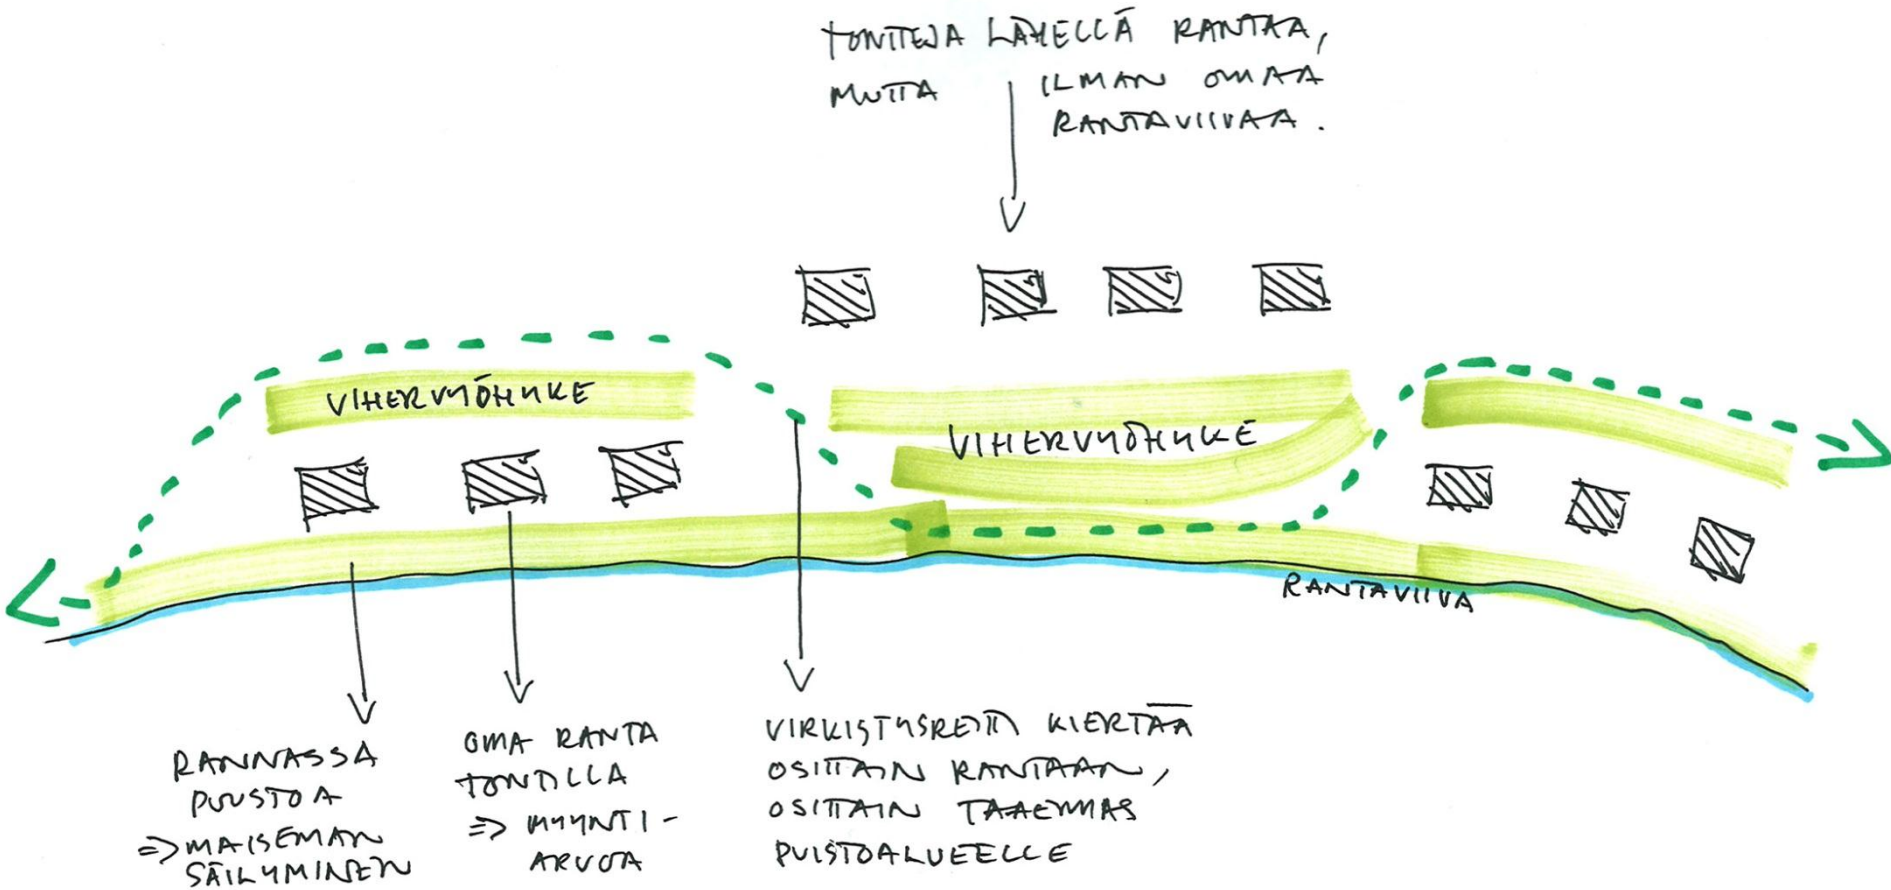 TONTTEJA LÄHELLÄ RANTAA,
MUTTA ILMAN OMAA
RANTAVIIVAA.
VIHERVYÖHYKE
VIHERVYÖHYKE
RANTAVIIVA
RANNASSA
PUUSTOA
=> MAISEMAN
SÄILYMINEN
OMA RANTA
TONTILLA
=> MYYNTI-
ARVOA
VIRKISTYSREITTI KIERTÄÄ
OSITTAIN RANTAAN,
OSITTAIN TAAEMMAS
PUISTOALUEELLE